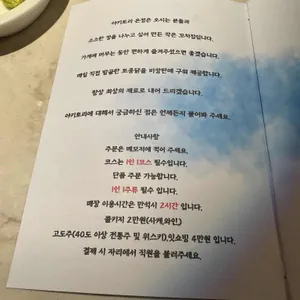 야키토리 은정은 오시는 분들과
소소한 정을 나누고 싶어 만든 작은 꼬치집입니다.
가게에 머무는 동안 편하게 즐겨주셨으면 좋겠습니다.
매일 직접 발골한 토종닭을 비장탄에 구워 제공합니다.
항상 최상의 재료로 내어 드리겠습니다.
야키토리에 대해서 궁금하신 점은 언제든지 물어봐 주세요.
안내사항
주문은 메모지에 적어 주세요.
코스는 1인 1코스 필수입니다.
단품 주문 가능합니다.
1인 1주류 필수 입니다.
매장 이용시간은 만석시 2시간 입니다.
콜키지 2만원(사케,와인)
고도주(40도 이상 전통주 및 위스키),잇쇼빙 4만원 입니다.
결제 시 자리에서 직원을 불러주세요.